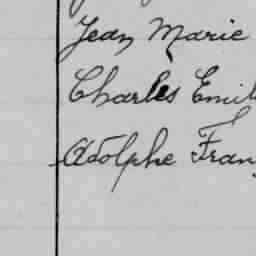 Jean Marie
Charles Emil
Adolphe Fran